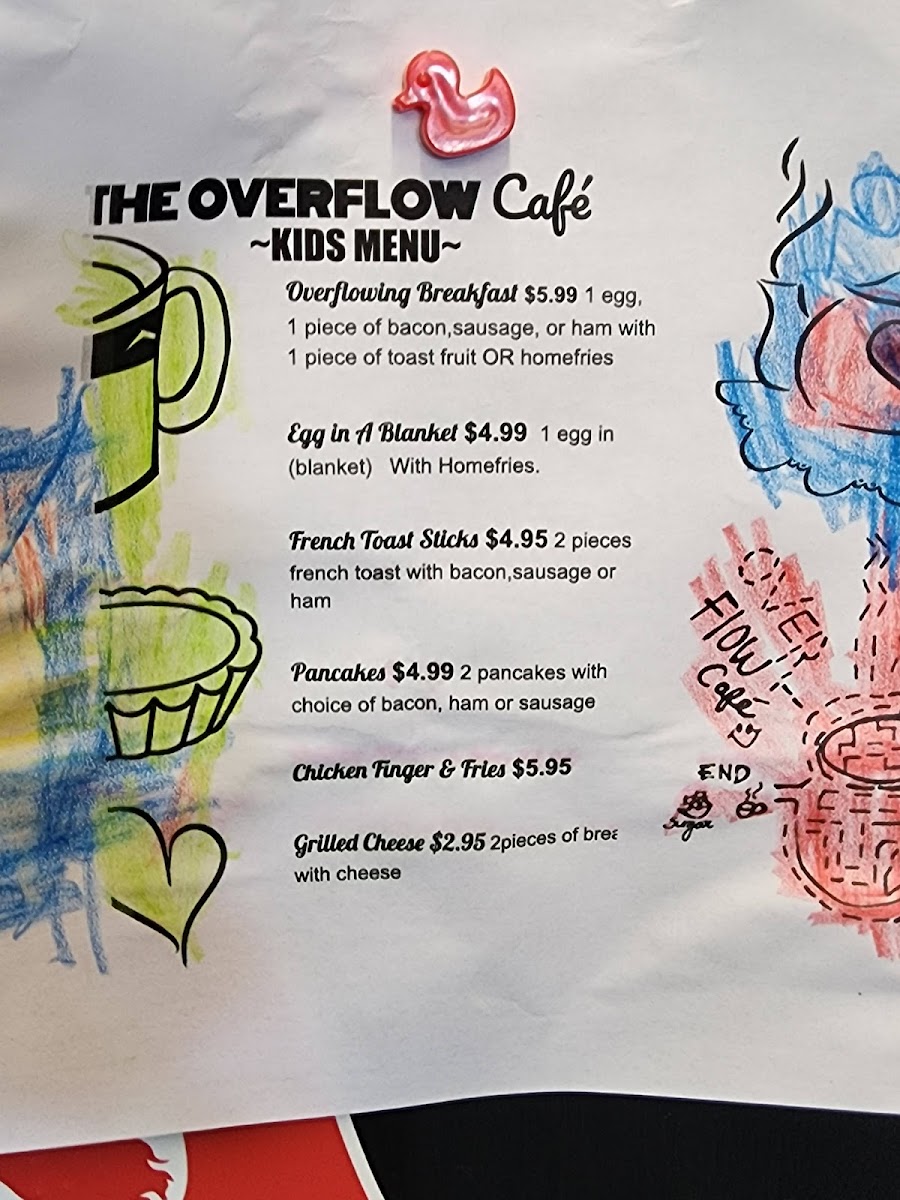 THE OVERFLOW Café
~KIDS MENU~
Overflowing Breakfast $5.99 1 egg,
1 piece of bacon,sausage, or ham with
1 piece of toast fruit OR homefries
Egg in A Blanket $4.99 1 egg in
(blanket) With Homefries.
French Toast Sticks $4.95 2 pieces
french toast with bacon,sausage or
ham
Pancakes $4.99 2 pancakes with
choice of bacon, ham or sausage
Chicken Finger & Fries $5.95
Grilled Cheese $2.95 2pieces of
with cheese
OVER
FlOW
Café
END
Sugar